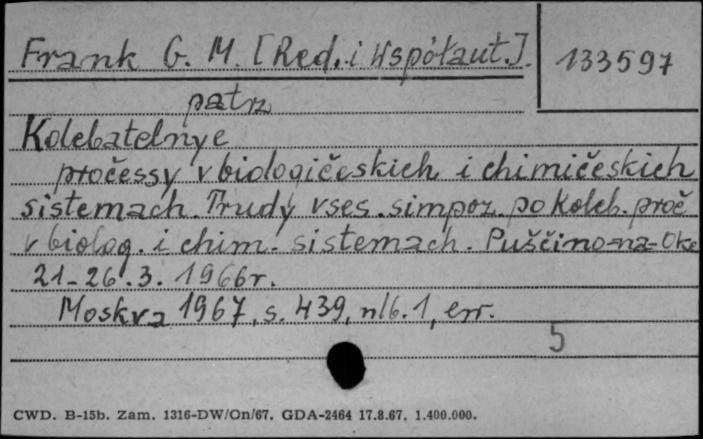 Frank G. M. [Red. i współaut.].
133597
patrz
Kolebatelnye
pročessy v biologičeskich i chimičeskich
sistemach. Trudy vses. simpoz. po koleb. proč
v biolog. i chim. sistemach. Puščino-na-Oke
21-26.3. 1966r.
Moskva 1967, s. 439, nlb. 1, err.
5
CWD. B-15b. Zam. 1316-DW/On/67. GDA-2464 17.8.67. 1.400.000.